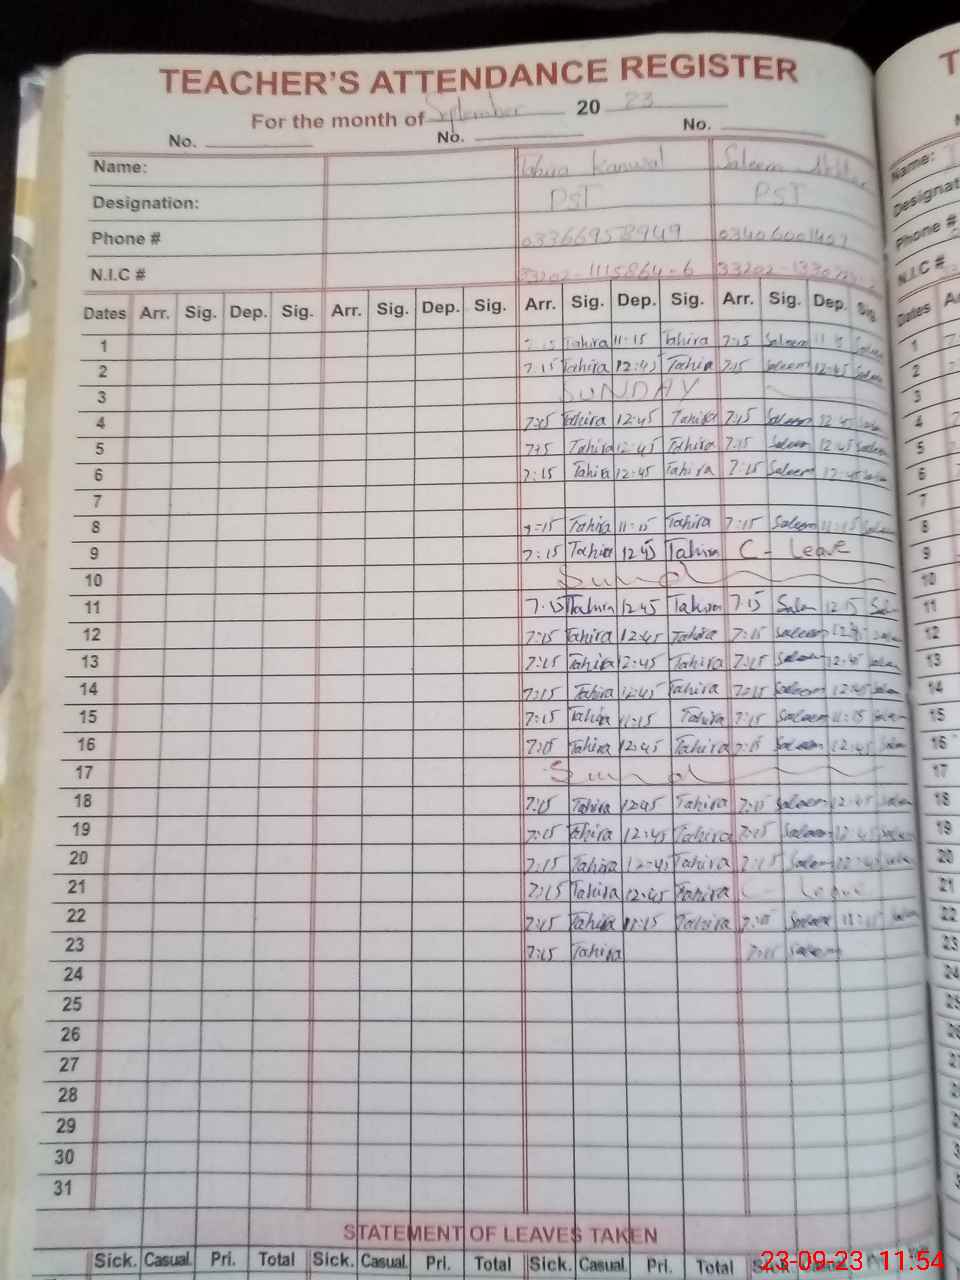 TEACHER'S ATTENDANCE REGISTER
For the month of September 20 23
No. No. No.
Name: Tahira Kanwal Saleem Akhtar
Designation: PST PST
Phone # 03366958949
N.I.C # 33202-1115864-6
Dates Arr. Sig. Dep. Sig. Arr. Sig. Dep. Sig. Arr. Sig. Dep. Sig. Arr. Sig. Dep. Sig.
1 7:15 Tahira 11:15 Tahira 7:15 Saleem 11:15 Saleem
2 7:15 Tahira 12:45 Tahira 7:15 Saleem 12:45 Saleem
3 SUNDAY
4 7:15 Tahira 12:45 Tahira 7:15 Saleem 12:45 Saleem
5 7:15 Tahira 12:45 Tahira 7:15 Saleem 12:45 Saleem
6 7:15 Tahira 12:45 Tahira 7:15 Saleem 12:45 Saleem
7
8 7:15 Tahira 11:15 Tahira 7:15 Saleem 11:15 Saleem
9 7:15 Tahira 12:45 Tahira C - Leave
10 Sund
11 7:15 Tahira 12:45 Tahira 7:15 Salem
12 7:15 Tahira 12:45 Tahira 7:15 Saleem 12:45 Saleem
13 7:15 Tahira 12:45 Tahira 7:15 Saleem 12:45 Saleem
14 7:15 Tahira 12:45 Tahira 7:15 Saleem 12:45 Saleem
15 7:15 Tahira 11:15 Tahira 7:15 Saleem 11:15 Saleem
16 7:15 Tahira 12:45 Tahira 7:15 Saleem 12:45 Saleem
17 Sund
18 7:15 Tahira 12:45 Tahira 7:15 Saleem 12:45 Saleem
19 7:15 Tahira 12:45 Tahira 7:15 Saleem 12:45 Saleem
20 7:15 Tahira 12:45 Tahira 7:15 Saleem 12:45
21 7:15 Tahira 12:45 Tahira C - Leave
22 7:15 Tahira 11:15 Tahira 7:15 Saleem 11:15 Saleem
23 7:15 Tahira 7:15 Saleem
24
25
26
27
28
29
30
31
STATEMENT OF LEAVES TAKEN
Sick. Casual. Pri. Total Sick. Casual. Pri. Total Sick. Casual. Pri. Total
23-09-23 11:54